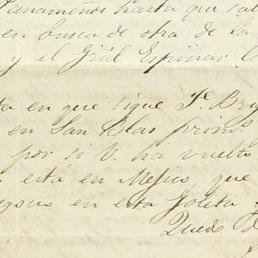 hasta que sal
en busca de otra de la
y el Gral Espinar
ta en que sigue Fo. Brig
en San Blas prim
por si V. ha vuelto
esta en Mejico que
en esta Goleta
Quedo